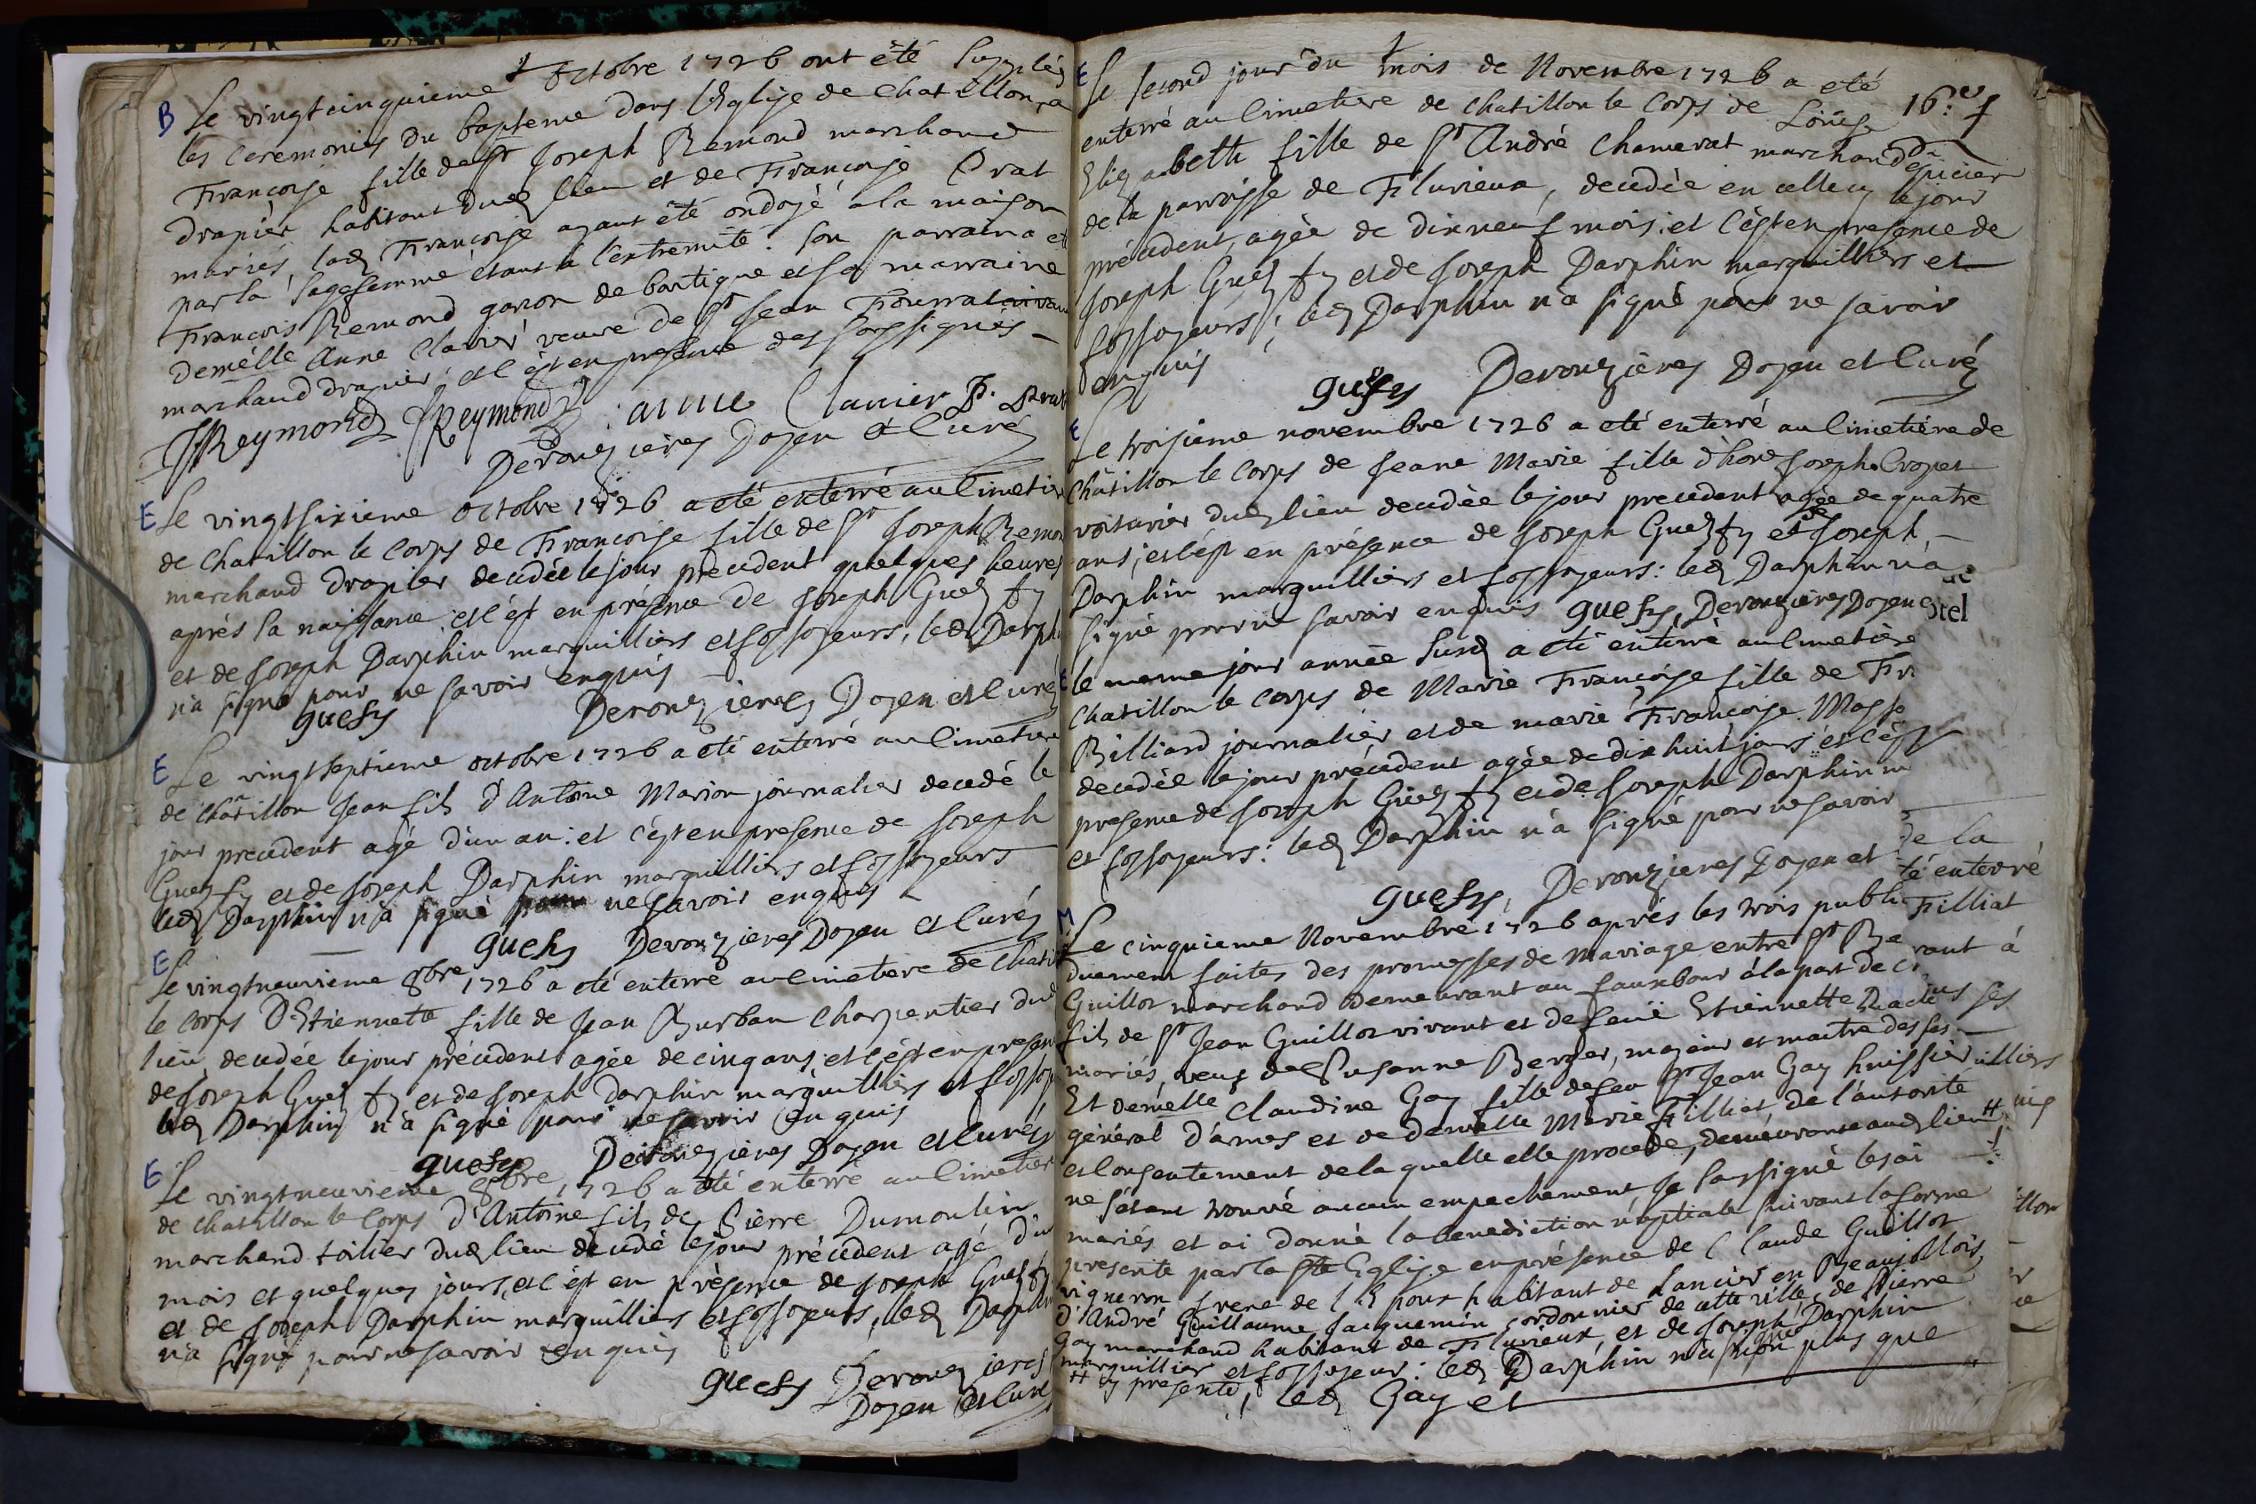 B Le vingtcinquieme octobre 1726 ont été supplées
les ceremonies du bapteme dans l'Eglise de Chatillon a
Francoise fille de Sr Joseph Remond marchand
drapier habitant dud lieu et de Francoise Prat
mariés, lad Francoise ayant été ondoyé a la maison
par la sagefemme étant à l'extremité. son parrain a eté
Francois Remond garcon de boutique et sa marraine
demelle Anne Clavier veuve de Sr Jean
marchand drapier et c'est en presence des soussignés
JReymond JReymond anne Clavier F. Prat
Derouzieres Doyen et Curé
E Le vingtsixieme octobre 1726 a eté enterré au Cimetiere
de Chatillon le Corps de Francoise fille de Sr Joseph Remon
marchand drapier decedée le jour precedent quelques heures
aprés sa naissance et c'est en presence de Joseph Guezfy
et de Joseph Darphin marguilliers et fossoyeurs, led Darph
n'a signé pour ne savoir enquis
guefy Derouzieres Doyen et Curé
E Le vingtseptieme octobre 1726 a eté enterré au Cimetiere
de Chatillon Jean fils d'Antoine Marion journalier decedé le
jour precedent agé d'un an: et c'est en presence de Joseph
Guezfy et de Joseph Darphin marguilliers et fossoyeurs
led Darphin n'a signé pour ne savoir enquis
guefy Derouzieres Doyen et Curé
E Le vingtneuvieme 8bre 1726 a eté enterré au Cimetiere de Chatill
le Corps d'Etiennette fille de Jean Burban Charpentier dud
lieu, decedée le jour précedent agée de cinq ans et c'est en presen
de Joseph Guezfy et de Joseph Darphin marguilliers et fossoy
led Darphin n'a signé pour ne savoir enquis
guefy Derouzieres Doyen et Curé
E Le vingtneuvieme 8bre 1726 a eté enterré au Cimetier
de Chatillon le Corps d'Antoine fils de Pierre Dumoulin
marchand toilier dud lieu decedé le jour précedent agé d'un
mois et quelques jours, et c'est en présence de Joseph Guezfy
et de Joseph Darphin marguilliers et fossoyeurs, led Darphin
n'a signé pour ne savoir enquis
guefy Derouzieres
Doyen et Curé
16.e f
E Le second jour du mois de Novembre 1726 a eté
enterré au Cimetiere de Chatillon le Corps de Loüise
Elizabeth fille de Sr André Chamerat marchand epicier
de la parroisse de Flurieux, decedée en celle cy le jour
précedent, agée de dixneuf mois: et c'est en presence de
Joseph Guezfy et de Joseph Darphin marguilliers et
fossoyeurs; led Darphin n'a signé pour ne savoir
enquis
guefy Derouzières Doyen et Curé
E Le troisieme novembre 1726 a eté enterré au Cimetiére de
Châtillon le Corps de Jeane Marie fille d'hone Joseph Cropet
voiturier dud lieu decedée le jour precedent agée de quatre
ans; et c'est en présence de Joseph Guezfy et de Joseph
Darphin marguilliers et fossoyeurs: led Darphin n'a
signé pour ne savoir enquis guefy, Derouzières Doyen
E Le meme jour année susd a eté enterré au Cimetiére
Chatillon le Corps de Marie Francoise fille de Fr
Billiard journalier et de marie Francoise Masso
decedée le jour précedent agée de dix huit jours et c'est
presence de Joseph Guezfy et de Joseph Darphin m
et fossoyeurs: led Darphin n'a signé pour ne savoir
guefy, Derouzieres Doyen et
M Le cinquieme Novembre 1726 aprés les trois publi
duement faites des promesses de Mariage entre Sr Be
Guillot marchand demeurant au fauxbour à la part de
fils de Sr Jean Guillot vivant et de feuë Etiennette
mariés, veuf de Susanne Berger, majeur et maitre de ses
Et demelle Claudine Gay fille de feu Sr Jean Gay huissier
général d'armes et de demelle Marie Filliat, de l'autorité
et consentement de laquelle elle procede, demeurante aud lieu #
ne s'étant trouvé aucun empechement, Je soussigné les ai
mariés et ai donné la benediction nuptiale suivant la forme
prescrite par la Ste Eglise en présence de Claude Guillot
vigneron frere de l'Epoux habitant de Lancier en Beaujollois
d'André Guillaume Jacquemin cordonnier de cette ville, de Pierre
Gay marchand habitant de Flurieux, et de Joseph Darphin
marguillier et fossoyeur: led Darphin n'a signé non plus que
# cy presente, led Gay et
de la
té enterré
Filliat
rant à
ses
uilliers
uis
illon